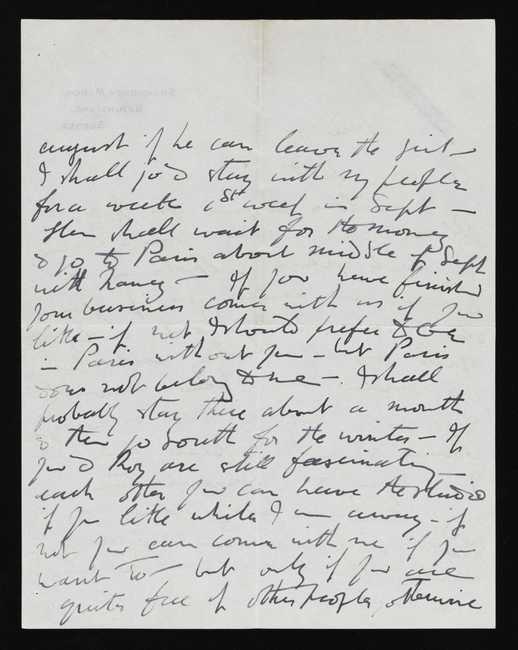 august if he can leave the girl –
I shall go & stay with my people
for a week 1st week in Sept –
then shall wait for the money
& go to Paris about middle of Sept
with – If you have finished
your business come with us if you
like – if not I should prefer to be
in Paris without you – but Paris
does not belong to me – . I shall
probably stay there about a month
& then go South for the winter – If
you & Roy are still fascinating
each other you can have the studio
if you like while I am away – if
not you can come with me if you
want to – but only if you are
quite free of other people, otherwise